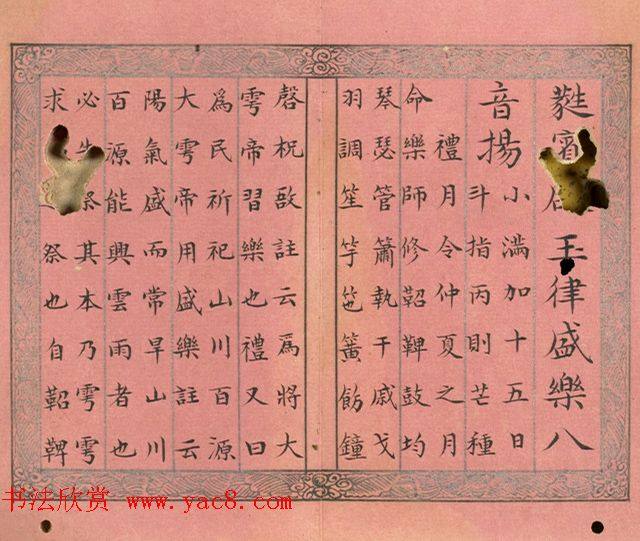 蕤玉律盛樂八
音揚
小滿加十五日
斗指丙則芒種
禮月令仲夏之月
命樂師修鞀鞞鼓均
琴瑟管簫執干戚戈
羽調笙竽竾簧飭鐘
磬柷敔註云爲將大
雩帝習樂也禮又曰
爲民祈祀山川百源
大雩帝用盛樂註云
陽氣盛而常旱山川
百源能興雲雨者也
必先祭其本乃雩雩
求祭也自鞀鞞
书法欣赏 www.yac8.com